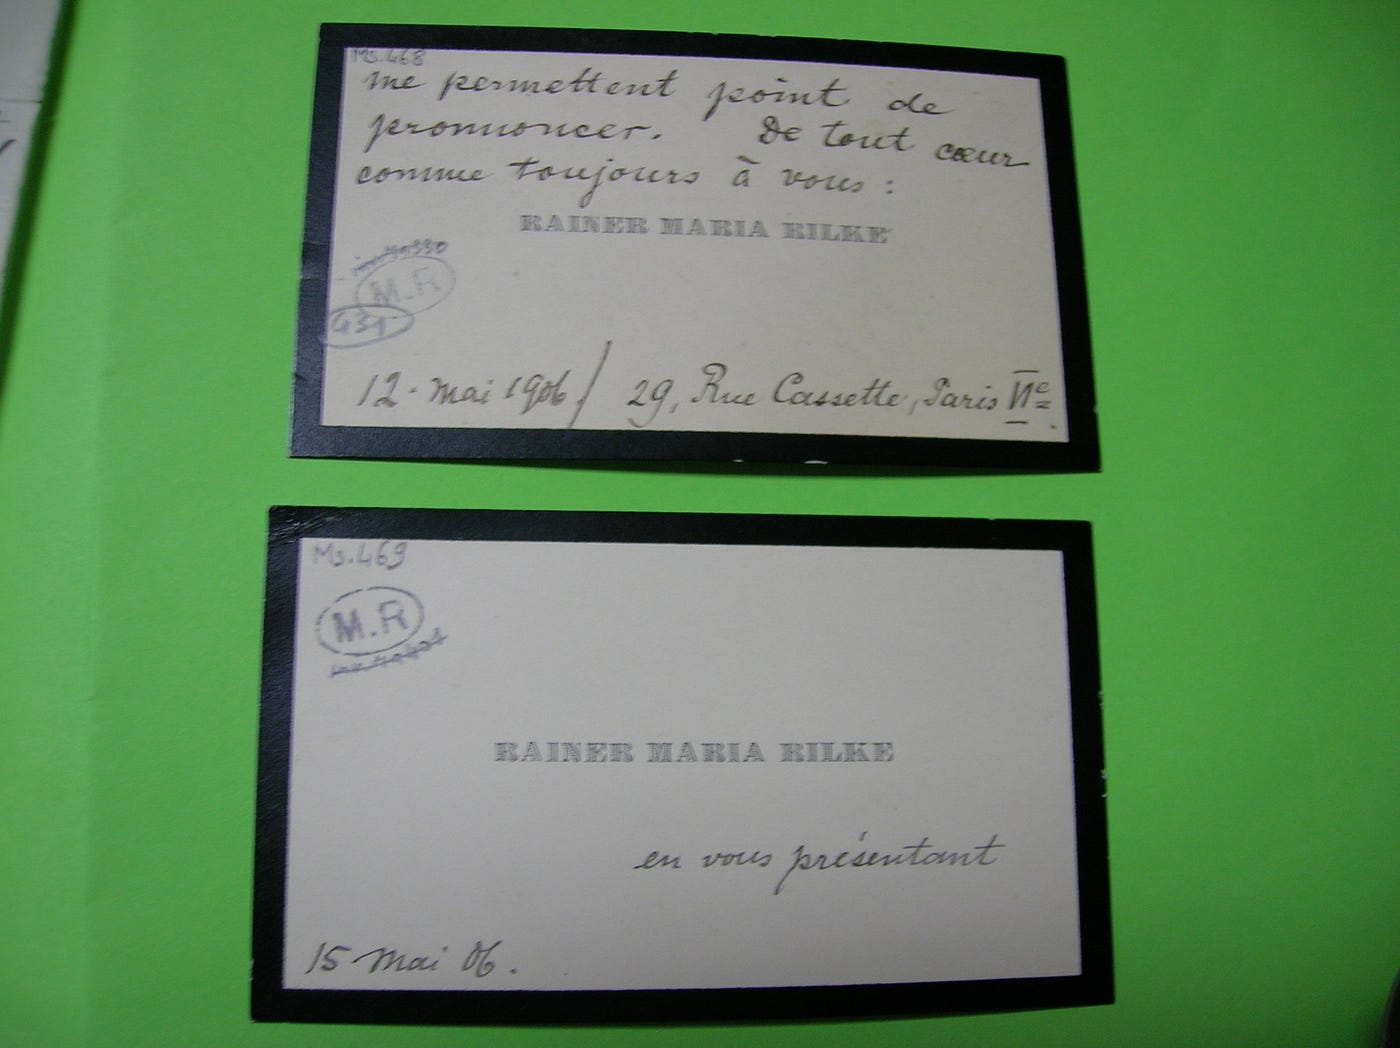 Ms. 468
me permettent point de
pronnoncer. De tout cœur
comme toujours à vous :
RAINER MARIA RILKE
M.R
431
12. mai 1906 / 29, Rue Cassette, Paris VIe.
Ms. 469
M.R
RAINER MARIA RILKE
en vous présentant
15 mai 06.